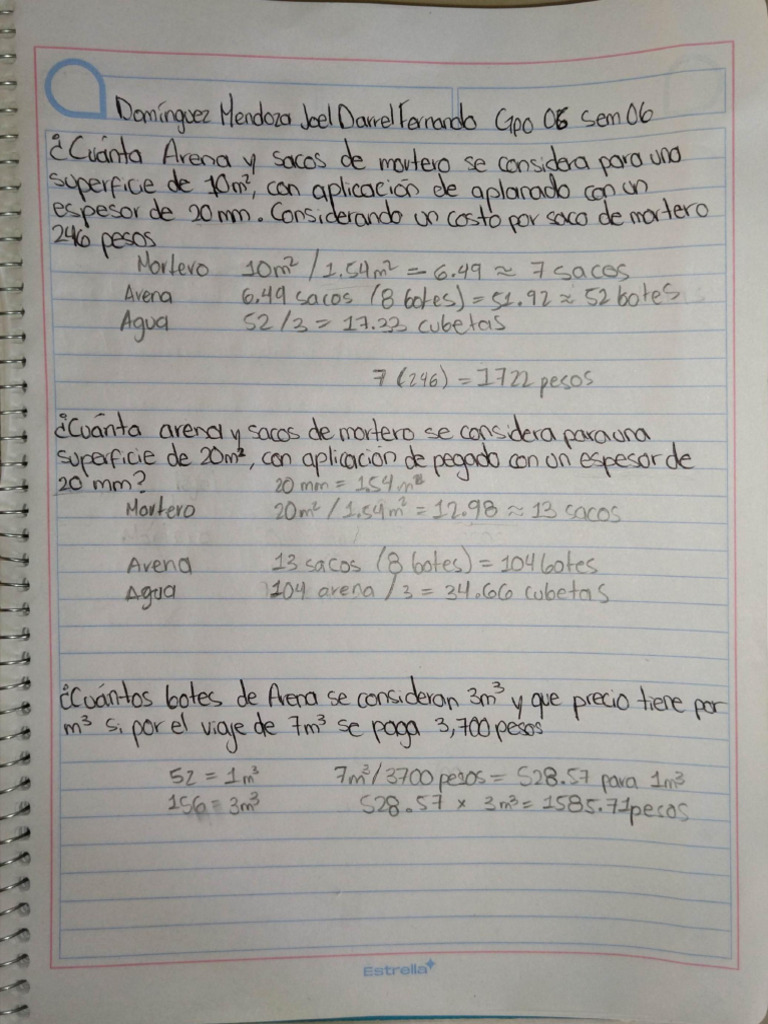 Domínguez Mendoza Joel Darrel Fernando Gpo 06 Sem 06
¿Cuánta Arena y sacos de mortero se considera para una
superfice de 10m², con aplicación de aplanado con un
espesor de 20 mm. Considerando un costo por saco de mortero
246 pesos
Mortero 10m² / 1.54m² = 6.49 ≈ 7 sacos
Arena 6.49 sacos (8 botes) = 51.92 ≈ 52 botes
Agua 52 / 3 = 17.33 cubetas
7 (246) = 1722 pesos
¿Cuánta arena y sacos de mortero se considera para una
superficie de 20m², con aplicación de pegado con un espesor de
20 mm? 20 mm = 1.54 m²
Mortero 20m² / 1.54m² = 12.98 ≈ 13 sacos
Arena 13 sacos (8 botes) = 104 botes
Agua 104 arena / 3 = 34.66 cubetas
¿Cuántos botes de Arena se consideran 3m³ y que precio tiene por
m³ si por el viaje de 7m³ se paga 3,700 pesos
52 = 1m³ 7m³/3700 pesos = 528.57 para 1m³
156 = 3m³ 528.57 × 3m³ = 1585.71 pesos
Estrella